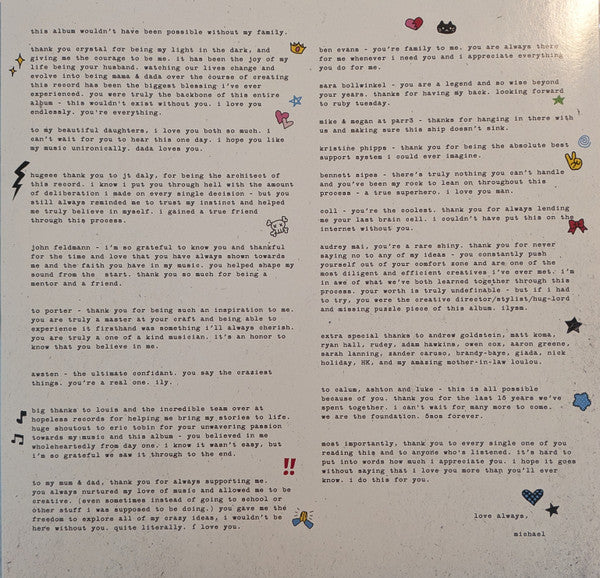 this album wouldn't have been possible without my family.
thank you crystal for being my light in the dark, and
giving me the courage to be me. it has been the joy of my
life being your husband. watching our lives change and
evolve into being mama & dada over the course of creating
this record has been the biggest blessing i've ever
experienced. you were truly the backbone of this entire
album - this wouldn't exist without you. i love you
endlessly. you're everything.
to my beautiful daughters, i love you both so much. i
can't wait for you to hear this one day. i hope you like
my music unironically. dada loves you.
hugeee thank you to jt daly, for being the architect of
this record. i know i put you through hell with the amount
of deliberation i made on every single decision - but you
still always reminded me to trust my instinct and helped
me truly believe in myself. i gained a true friend
through this process.
john feldmann - i'm so grateful to know you and thankful
for the time and love that you have always shown towards
me and the faith you have in my music. you helped shape my
sound from the start. thank you so much for being a
mentor and a friend.
to porter - thank you for being such an inspiration to me.
you are truly a master at your craft and being able to
experience it firsthand was something i'll always cherish.
you are truly a one of a kind musician. it's an honor to
know that you believe in me.
awsten - the ultimate confidant. you say the craziest
things. you're a real one. ily.
big thanks to louis and the incredible team over at
hopeless records for helping me bring my stories to life.
huge shoutout to eric tobin for your unwavering passion
towards my music and this album - you believed in me
wholeheartedly from day one. i know it wasn't easy, but
i'm so grateful we saw it through to the end.
to my mum & dad, thank you for always supporting me.
you always nurtured my love of music and allowed me to be
creative. (even sometimes instead of going to school or
other stuff i was supposed to be doing.) you gave me the
freedom to explore all of my crazy ideas, i wouldn't be
here without you. quite literally. i love you.
ben evans - you're family to me. you are always there
for me whenever i need you and i appreciate everything
you do for me.
sara bollwinkel - you are a legend and so wise beyond
your years. thanks for having my back. looking forward
to ruby tuesday.
mike & megan at parr3 - thanks for hanging in there with
us and making sure this ship doesn't sink.
kristine phipps - thank you for being the absolute best
support system i could ever imagine.
bennett sipes - there's truly nothing you can't handle
and you've been my rock to lean on throughout this
process - a true superhero. i love you man.
coll - you're the coolest. thank you for always lending
me your last brain cell. i couldn't have put this on the
internet without you.
audrey mai, you're a rare shiny. thank you for never
saying no to any of my ideas - you constantly push
yourself out of your comfort zone and are one of the
most diligent and efficient creatives i've ever met. i'm
in awe of what we've both learned together through this
process. your worth is truly undefinable - but if i had
to try, you were the creative director/stylist/hug-lord
and missing puzzle piece of this album. ilysm.
extra special thanks to andrew goldstein, matt koma,
ryan hall, rudey, adam hawkins, owen cox, aaron greene,
sarah lanning, zander caruso, brandy-baye, giada, nick
holiday, HK, and my amazing mother-in-law loulou.
to calum, ashton and luke - this is all possible
because of you. thank you for the last 15 years we've
spent together. i can't wait for many more to come.
we are the foundation. 5sos forever.
most importantly, thank you to every single one of you
reading this and to anyone who's listened. it's hard to
put into words how much i appreciate you. i hope it goes
without saying that i love you more than you'll ever
know. i do this for you.
love always,
michael